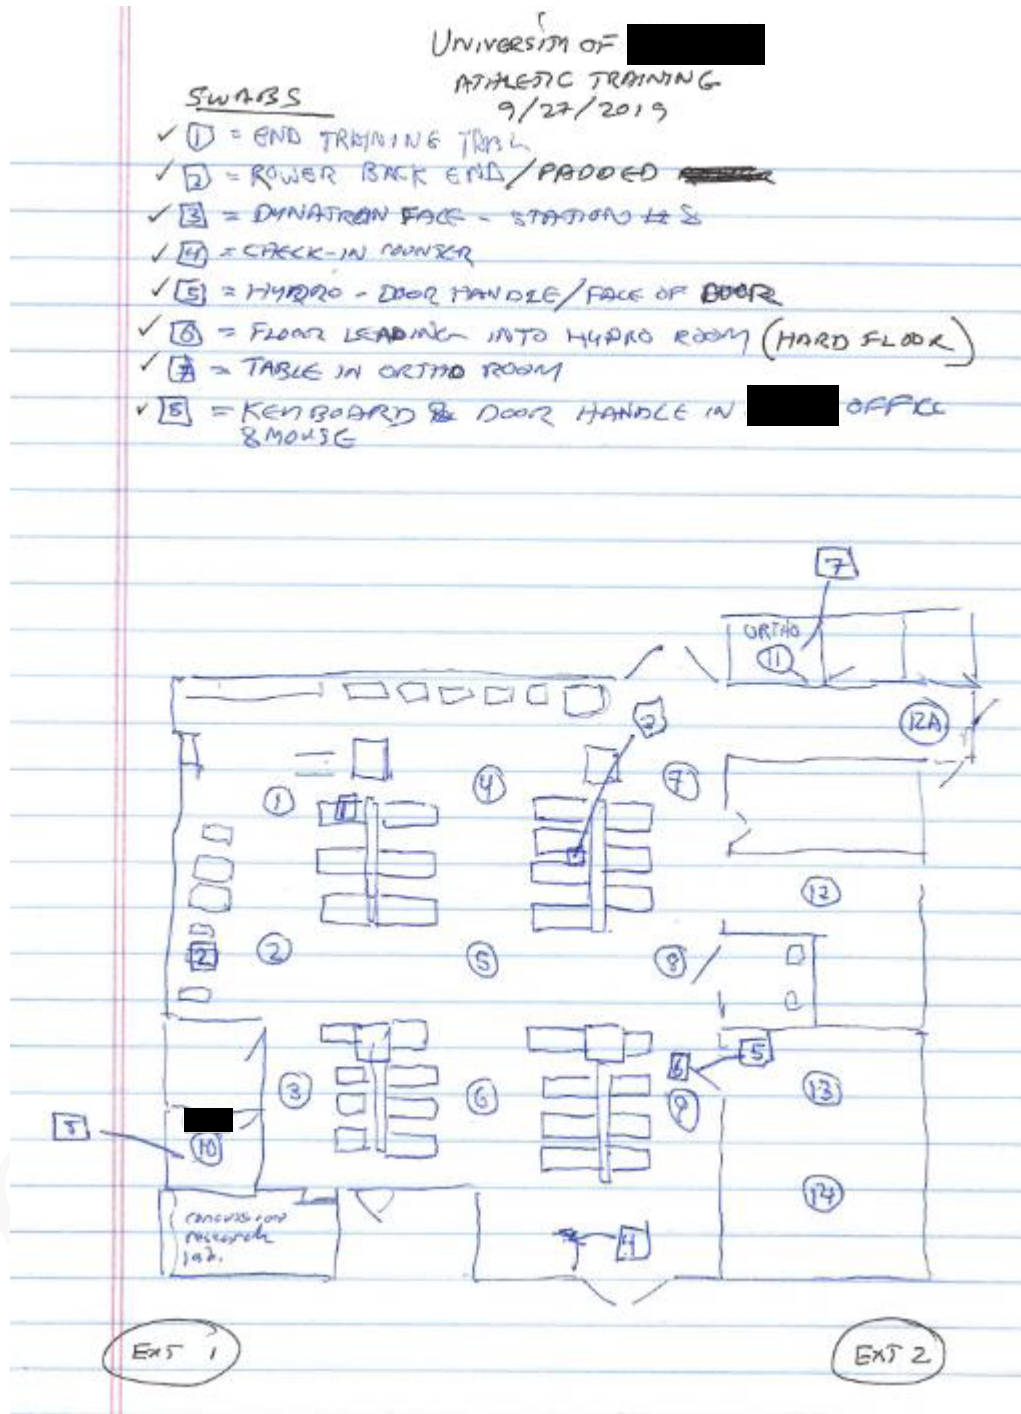 UNIVERSITY OF
ATHLETIC TRAINING
9/27/2019
SWABS
✓ 1 = END TRAINING TABLE
✓ 2 = ROWER BACK END/PADDED
✓ 3 = DYNATRON FACE - STATION # 8
✓ 4 = CHECK-IN COUNTER
✓ 5 = HYDRO - DOOR HANDLE/FACE OF DOOR
✓ 6 = FLOOR LEADING INTO HYDRO ROOM (HARD FLOOR)
✓ 7 = TABLE IN ORTHO ROOM
✓ 8 = KEYBOARD & DOOR HANDLE IN OFFICE
& MOUSE
7
ORTHO
11
3
12A
1
1
4
7
12
2
2
5
8
5
6
3
6
9
13
8
10
14
CONCUSSION
RESEARCH
LAB.
4
EXT 1
EXT 2